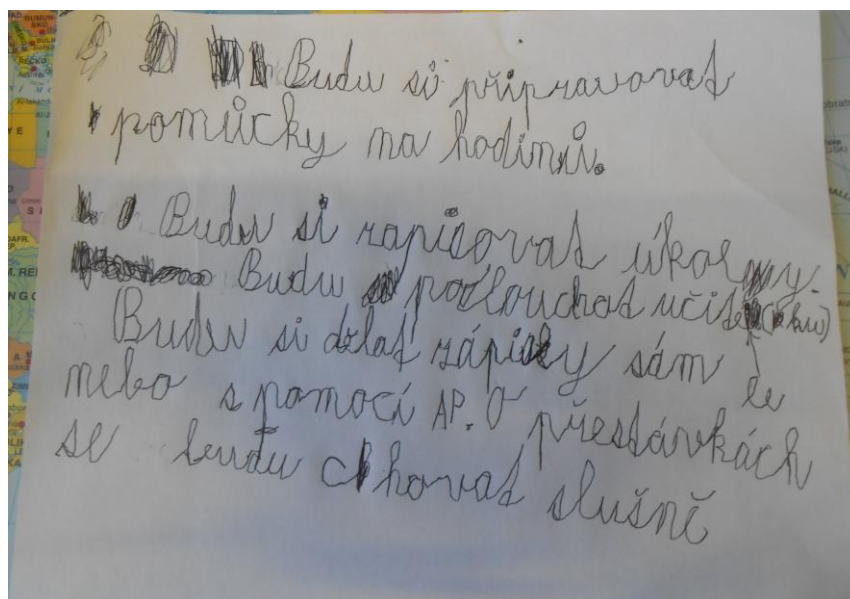 Budu si připravovat
pomůcky na hodinu.
Budu si zapisovat úkoly.
Budu poslouchat učitele(ku)
Budu si dělat zápisky sám
nebo s pomocí AP. O přestávkách
se budu chovat slušně